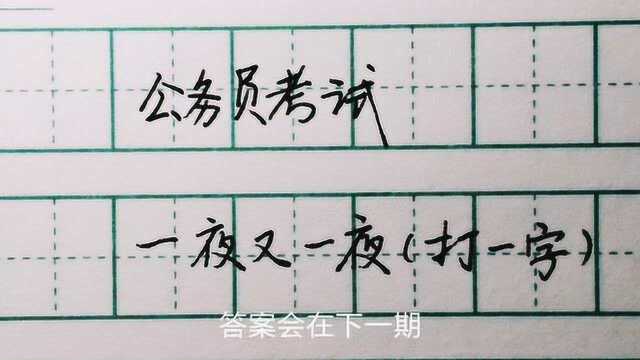 公务员考试
一夜又一夜(打一字)
答案会在下一期